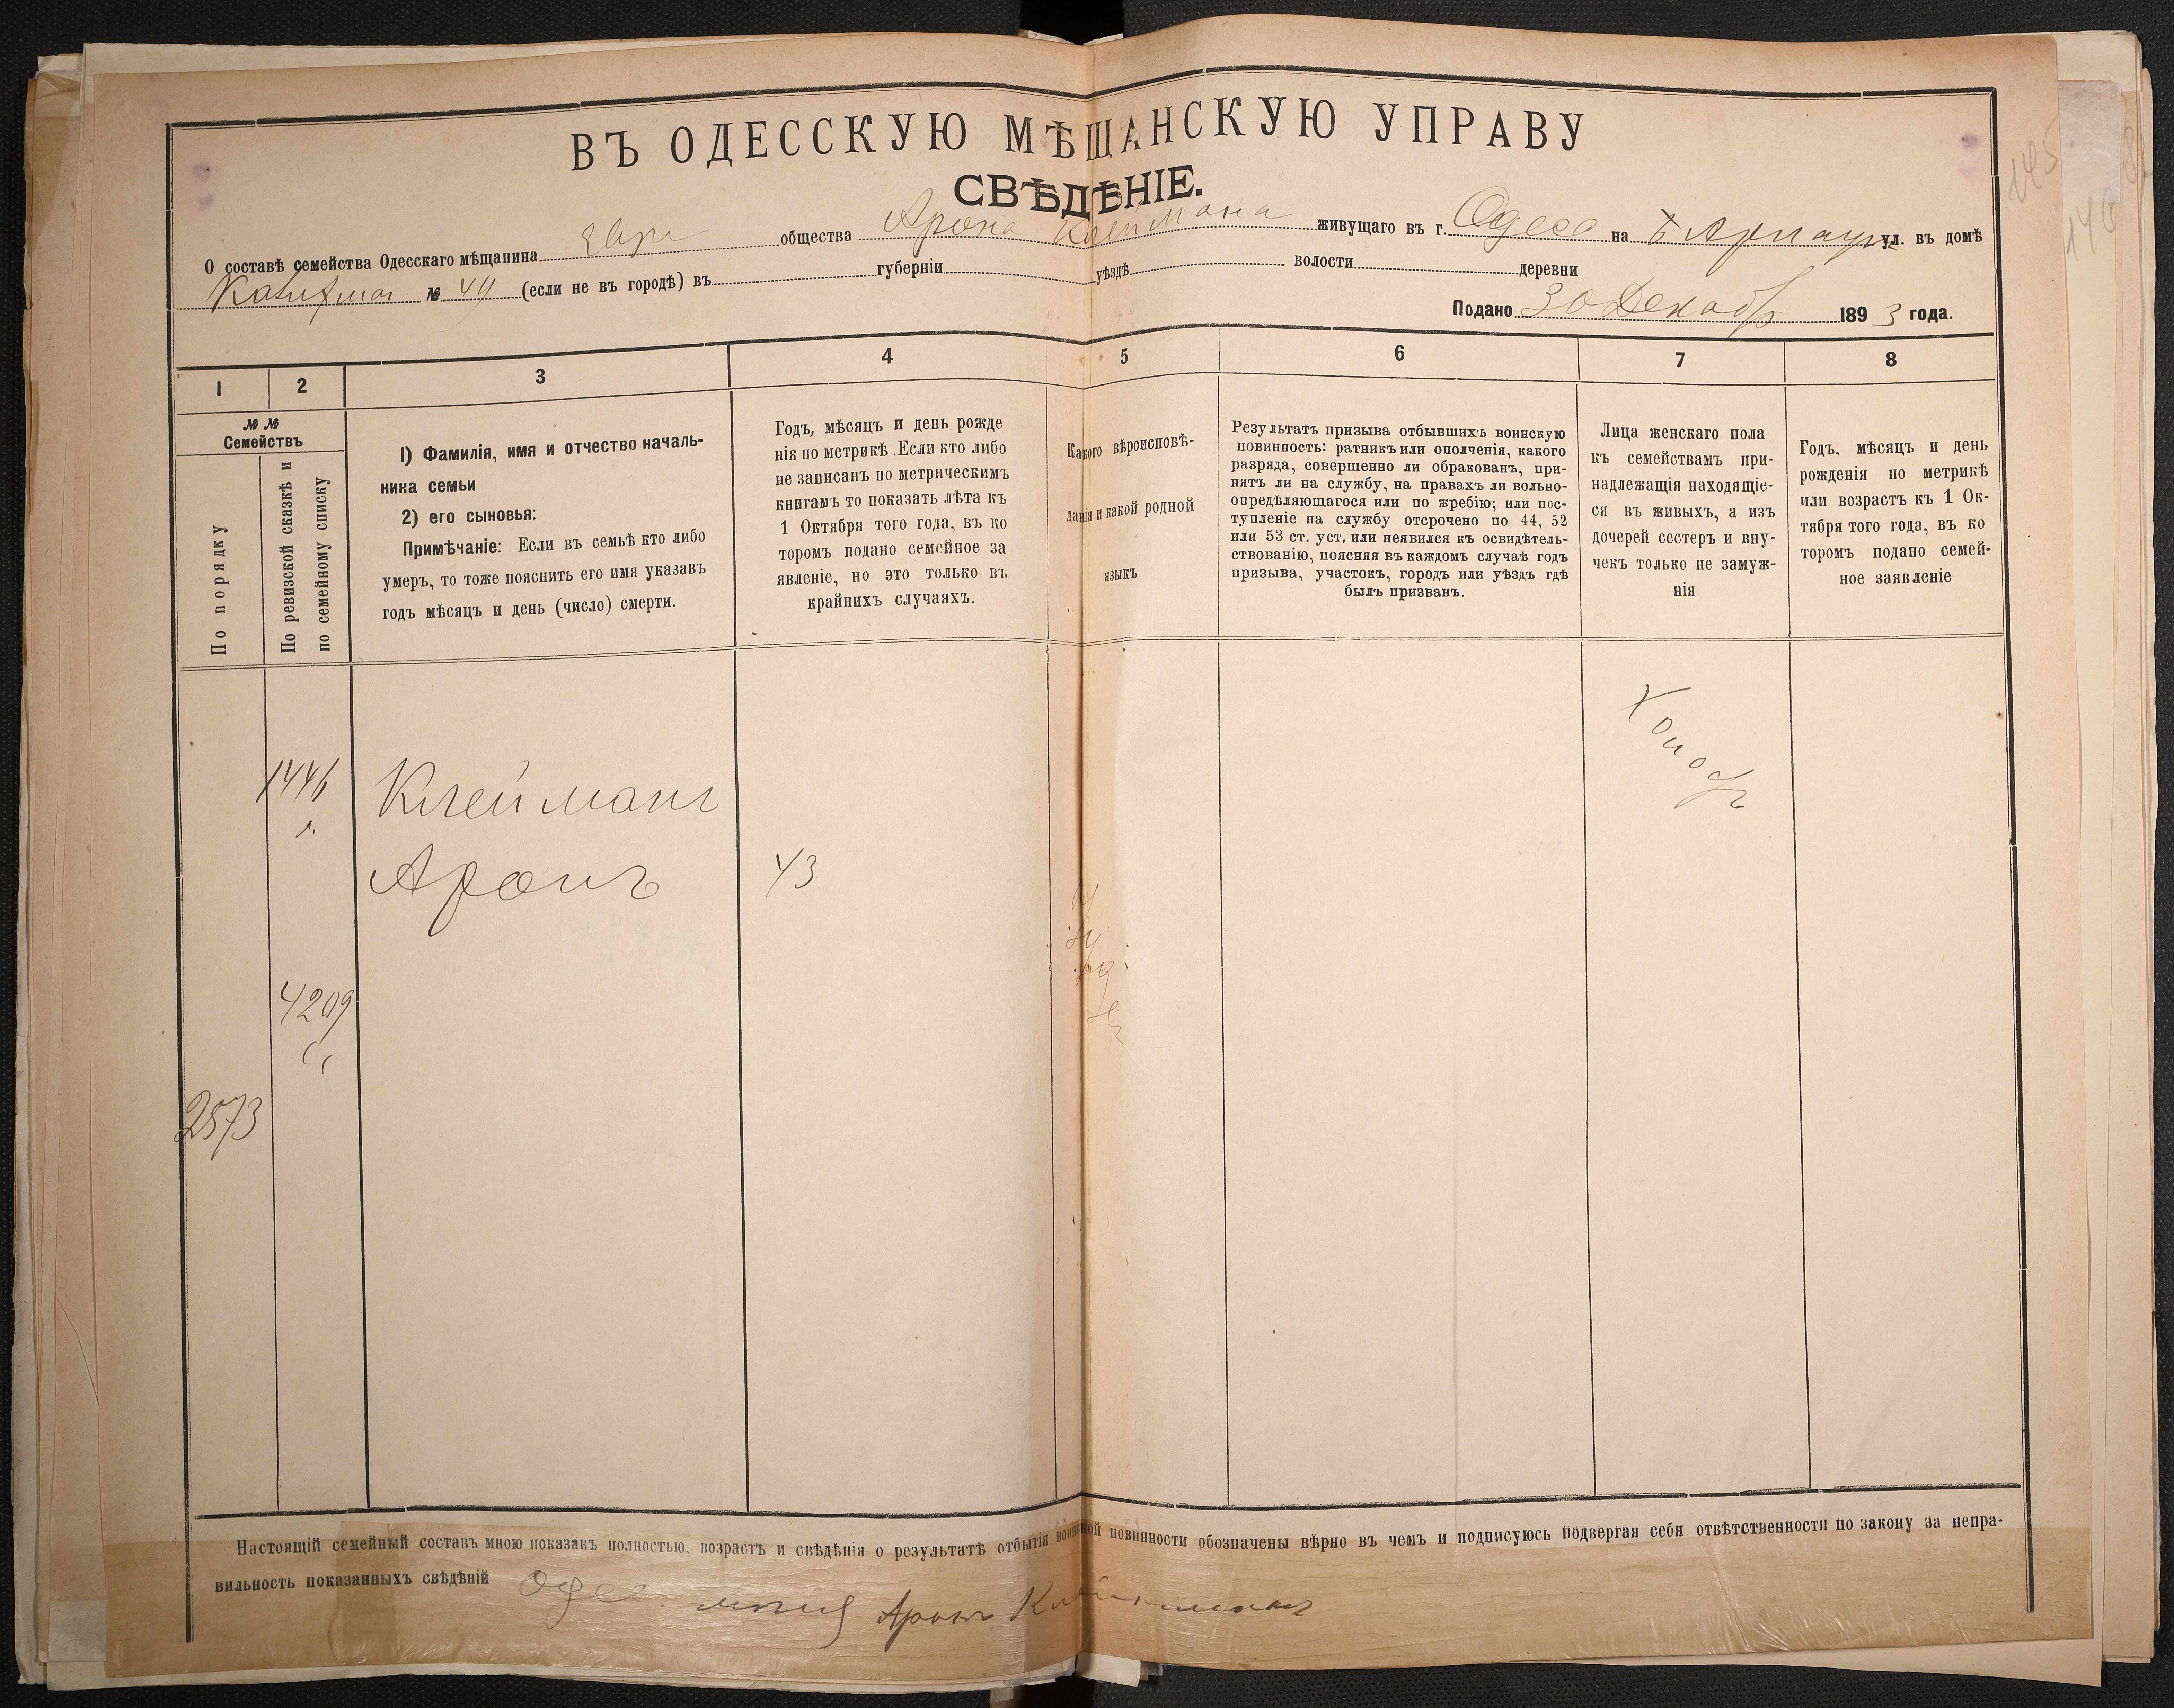 ВЪ ОДЕССКУЮ МѢЩАНСКУЮ УПРАВУ
СВѢДѢНІЕ.
О составѣ семейства Одесскаго мѣщанина Евре общества Арона Клеймана живущаго въ г. Одесс на Б Арнаут ул. въ домѣ
№ 49 (если не въ городѣ) въ губерніи уѣздѣ волости деревни
Подано 30 Декабр 1893 года.
1 2 3 4 5 6 7 8
№ № Семействъ
По порядку
По ревизской сказкѣ и
по семейному списку
1) Фамилія, имя и отчество началь-
ника семьи
2) его сыновья:
Примѣчаніе: Если въ семьѣ кто либо
умеръ, то тоже пояснить его имя указавъ
годъ мѣсяцъ и день (число) смерти.
Годъ, мѣсяцъ и день рожде
нія по метрикѣ. Если кто либо
не записанъ по метрическимъ
книгамъ то показать лѣта къ
1 Октября того года, въ ко
торомъ подано семейное за
явленіе, но это только въ
крайнихъ случаяхъ.
Какого вѣроисповѣ-
данія и какой родной
языкъ
Результатъ призыва отбывшихъ воинскую
повинность: ратникъ или ополченія, какого
разряда, совершенно ли обракованъ, при-
нятъ ли на службу, на правахъ ли вольно-
опредѣляющагося или по жребію; или пос-
тупленіе на службу отсрочено по 44, 52
или 53 ст. уст. или неявился къ освидѣтель-
ствованію, поясняя въ каждомъ случаѣ годъ
призыва, участокъ, городъ или уѣздъ гдѣ
былъ призванъ.
Лица женскаго пола
къ семействамъ при-
надлежащія находящіе-
ся въ живыхъ, а изъ
дочерей сестеръ и вну-
чекъ только не замуж-
нія
Годъ, мѣсяцъ и день
рожденія по метрикѣ
или возрастъ къ 1 Ок-
тября того года, въ ко
торомъ подано семей-
ное заявленіе
1446
Клейманъ
Аронъ
43
4209
2573
Настоящій семейный составъ мною показанъ полностью, возрастъ и свѣдѣнія о результатѣ отбытія воинской повинности обозначены вѣрно въ чемъ и подписуюсь подвергая себя отвѣтственности по закону за непра-
вильность показанныхъ свѣдѣній Одес. Аронъ Клейманъ
145
146